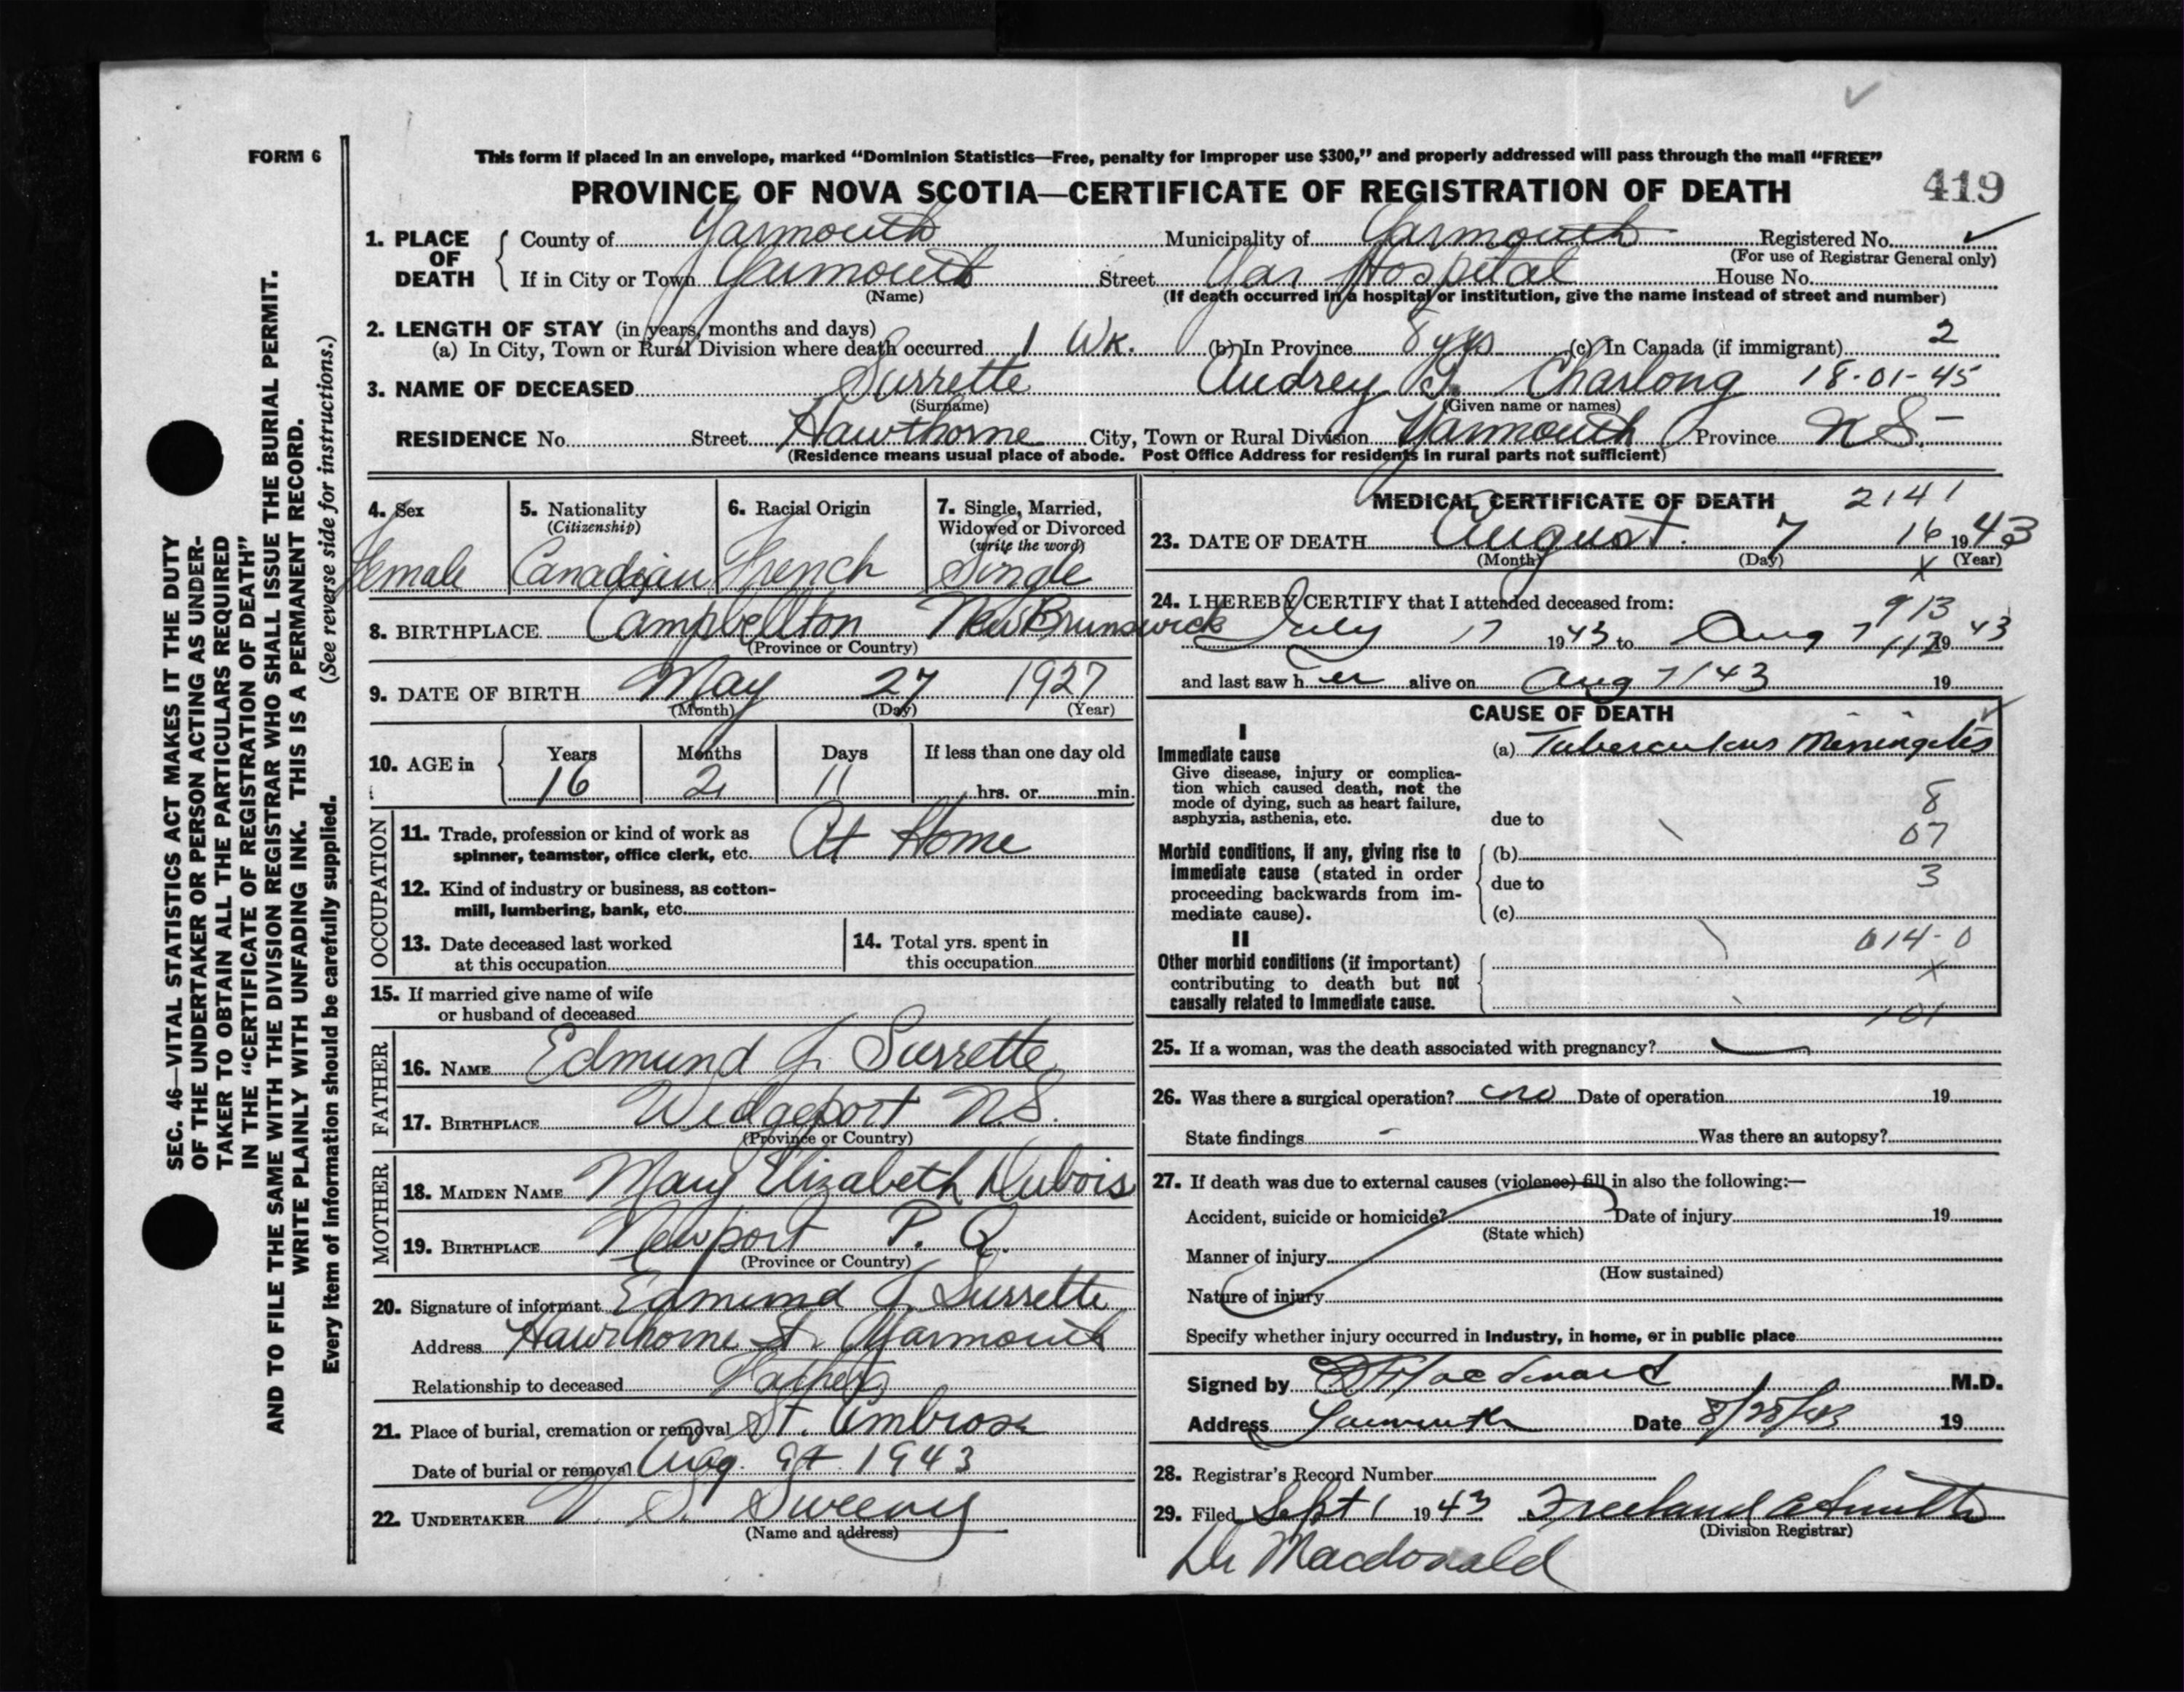 FORM 6
This form if placed in an envelope, marked “Dominion Statistics—Free, penalty for improper use $300,” and properly addressed will pass through the mail “FREE”
PROVINCE OF NOVA SCOTIA—CERTIFICATE OF REGISTRATION OF DEATH 419
1. PLACE OF DEATH
County of Yarmouth Municipality of Yarmouth Registered No. ✓
(For use of Registrar General only)
If in City or Town Yarmouth Street Yar Hospital House No.
(Name) (If death occurred in a hospital or institution, give the name instead of street and number)
2. LENGTH OF STAY (in years, months and days)
(a) In City, Town or Rural Division where death occurred 1 Wk. (b) In Province 8 yrs (c) In Canada (if immigrant) 2
3. NAME OF DECEASED Surrette Audrey J. Charlong 18-01-45
(Surname) (Given name or names)
RESIDENCE No. Street Hawthorne City, Town or Rural Division Yarmouth Province N S.
(Residence means usual place of abode. Post Office Address for residents in rural parts not sufficient)
4. Sex
Female
5. Nationality
(Citizenship)
Canadian
6. Racial Origin
French
7. Single, Married,
Widowed or Divorced
(write the word)
Single
8. BIRTHPLACE Campbellton New Brunswick
(Province or Country)
9. DATE OF BIRTH May 27 1927
(Month) (Day) (Year)
10. AGE in
Years Months Days If less than one day old
16 2 11 hrs. or min.
OCCUPATION
11. Trade, profession or kind of work as
spinner, teamster, office clerk, etc. At Home
12. Kind of industry or business, as cotton-
mill, lumbering, bank, etc.
13. Date deceased last worked
at this occupation
14. Total yrs. spent in
this occupation
15. If married give name of wife
or husband of deceased
FATHER
16. NAME Edmund J. Surrette
17. BIRTHPLACE Wedgeport N.S.
(Province or Country)
MOTHER
18. MAIDEN NAME Mary Elizabeth Dubois
19. BIRTHPLACE Newport P. Q.
(Province or Country)
20. Signature of informant Edmund J. Surrette
Address Hawthorne St. Yarmouth
Relationship to deceased Father
21. Place of burial, cremation or removal St. Ambrose
Date of burial or removal Aug. 9th 1943
22. UNDERTAKER V. S. Sweeny
(Name and address)
MEDICAL CERTIFICATE OF DEATH 2141
23. DATE OF DEATH August 7 16 1943
(Month) (Day) x (Year)
24. I HEREBY CERTIFY that I attended deceased from:
913
July 17 1943 to Aug 7 1943
and last saw h er alive on Aug 7/43 19
CAUSE OF DEATH
I
Immediate cause
Give disease, injury or complica-
tion which caused death, not the
mode of dying, such as heart failure,
asphyxia, asthenia, etc.
(a) Tuberculous Meningitis
8
due to
07
Morbid conditions, if any, giving rise to
immediate cause (stated in order
proceeding backwards from im-
mediate cause).
(b)
due to 3
(c)
II
014-0
Other morbid conditions (if important)
contributing to death but not
causally related to immediate cause.
x
101
25. If a woman, was the death associated with pregnancy?
26. Was there a surgical operation? no Date of operation 19
State findings - Was there an autopsy?
27. If death was due to external causes (violence) fill in also the following:—
Accident, suicide or homicide? Date of injury 19
(State which)
Manner of injury
(How sustained)
Nature of injury
Specify whether injury occurred in industry, in home, or in public place
Signed by Macdonald M.D.
Address Yarmouth Date 8/28/43 19
28. Registrar's Record Number
29. Filed Sept 1 1943 Freeland Smith
(Division Registrar)
Dr Macdonald
SEC. 46—VITAL STATISTICS ACT MAKES IT THE DUTY
OF THE UNDERTAKER OR PERSON ACTING AS UNDER-
TAKER TO OBTAIN ALL THE PARTICULARS REQUIRED
IN THE “CERTIFICATE OF REGISTRATION OF DEATH”
AND TO FILE THE SAME WITH THE DIVISION REGISTRAR WHO SHALL ISSUE THE BURIAL PERMIT.
WRITE PLAINLY WITH UNFADING INK. THIS IS A PERMANENT RECORD.
Every item of information should be carefully supplied. (See reverse side for instructions.)